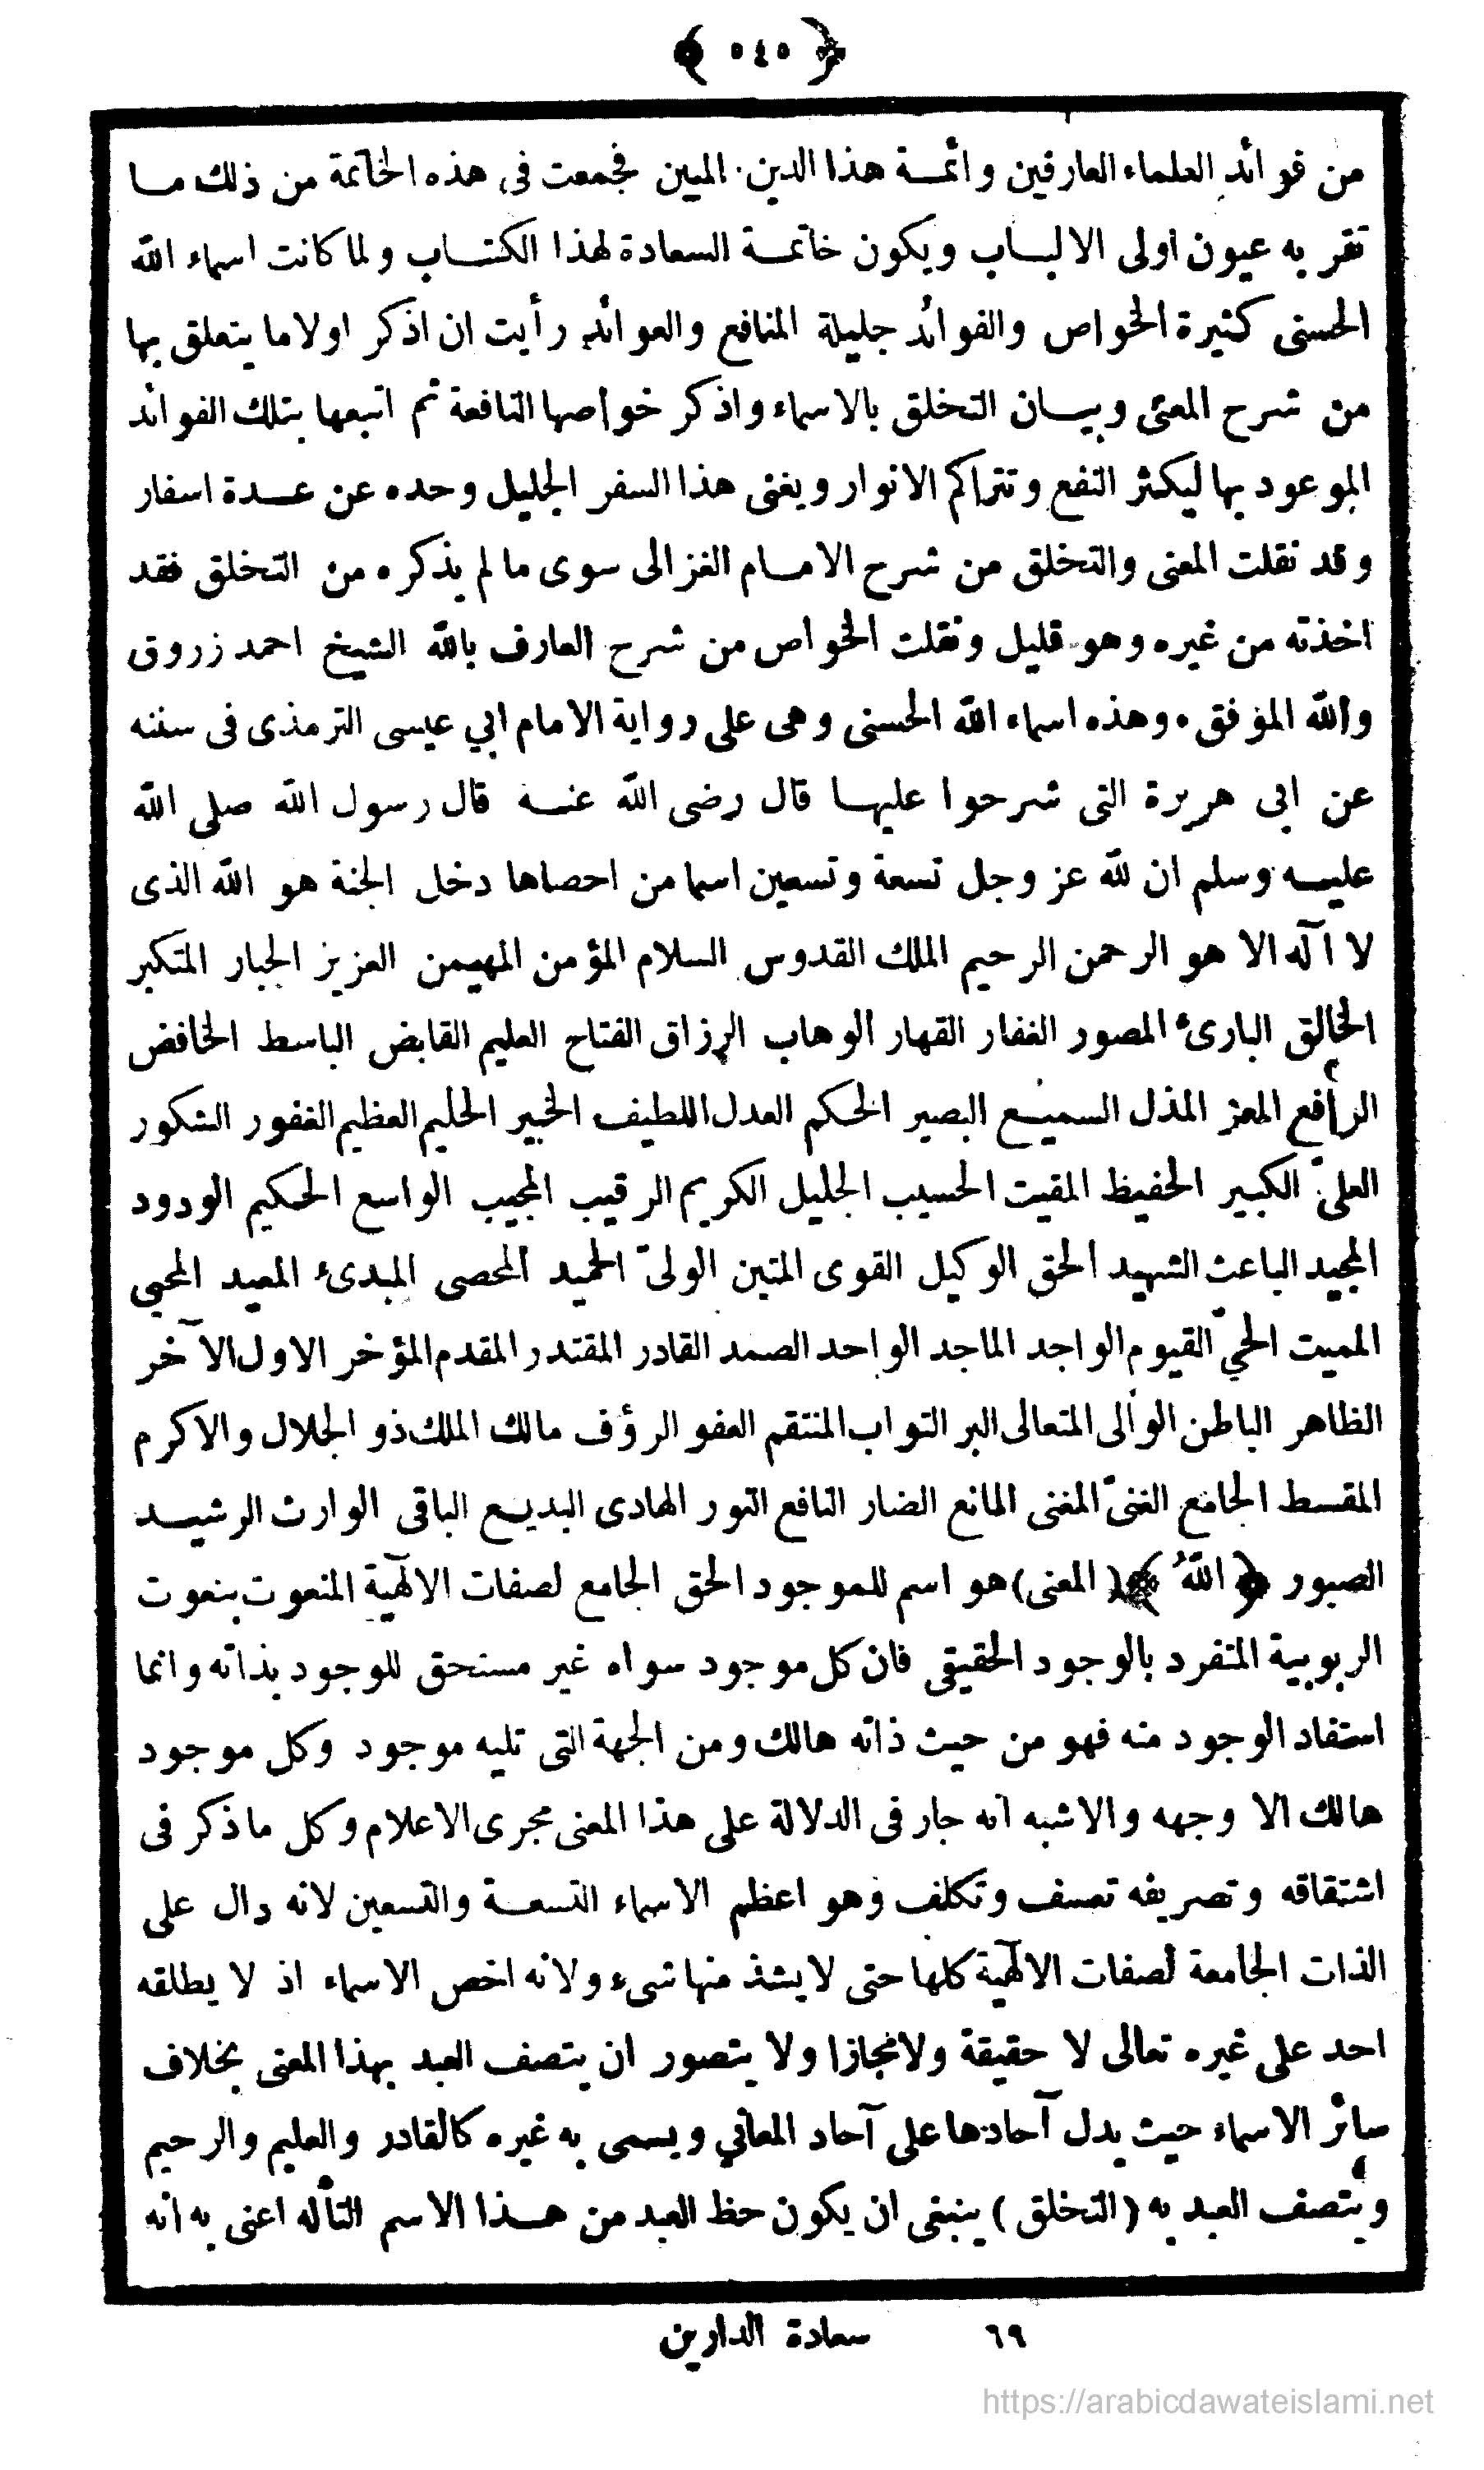 ﴿ ٥٤٥ ﴾
من فوائد العلماء العارفين وائمة هذا الدين المبين فجمعت فى هذه الخاتمة من ذلك ما
تقر به عيون اولى الالباب ويكون خاتمة السعادة لهذا الكتاب ولما كانت اسماء الله
الحسنى كثيرة الخواص والفوائد جليلة المنافع والعوائد رأيت ان اذكر اولا ما يتعلق بها
من شرح المعنى وبيان التخلق بالاسماء واذكر خواصها النافعة ثم اتبعها بتلك الفوائد
الموعود بها ليكثر النفع وتتراكم الانوار ويغنى هذا السفر الجليل وحده عن عدة اسفار
وقد نقلت المعنى والتخلق من شرح الامام الغزالى سوى ما لم يذكره من التخلق فقد
اخذته من غيره وهو قليل ونقلت الخواص من شرح العارف بالله الشيخ احمد زروق
والله الموفق ۰ وهذه اسماء الله الحسنى وهى على رواية الامام ابي عيسى الترمذى فى سننه
عن ابى هريرة التى شرحوا عليها قال رضى الله عنه قال رسول الله صلى الله
عليه وسلم ان لله عز وجل تسعة وتسعين اسما من احصاها دخل الجنة هو الله الذى
لا اله الا هو الرحمن الرحيم الملك القدوس السلام المؤمن المهيمن العزيز الجبار المتكبر
الخالق البارئ المصور الغفار القهار الوهاب الرزاق الفتاح العليم القابض الباسط الخافض
الرافع المعز المذل السميع البصير الحكم العدل اللطيف الخبير الحليم العظيم الغفور الشكور
العلىّ الكبير الحفيظ المقيت الحسيب الجليل الكريم الرقيب المجيب الواسع الحكيم الودود
المجيد الباعث الشهيد الحق الوكيل القوى المتين الولىّ الحميد المحصى المبدئ المعيد المحيى
المميت الحيّ القيوم الواجد الماجد الواحد الصمد القادر المقتدر المقدم المؤخر الاول الآخر
الظاهر الباطن الوالى المتعالى البر التواب المنتقم العفو الرؤف مالك الملك ذو الجلال والاكرم
المقسط الجامع الغنىّ المغنى المانع الضار النافع النور الهادى البديع الباقى الوارث الرشيد
الصبور ﴿ اللهُ ﴾ ( المعنى ) هو اسم للموجود الحق الجامع لصفات الالٰهية المنعوت بنعوت
الربوبية المتفرد بالوجود الحقيقى فان كل موجود سواه غير مستحق للوجود بذاته وانما
استفاد الوجود منه فهو من حيث ذاته هالك ومن الجهة التى تليه موجود وكل موجود
هالك الا وجهه والاشبه انه جار فى الدلالة على هذا المعنى مجرى الاعلام وكل ما ذكر فى
اشتقاقه وتصريفه تعسف وتكلف وهو اعظم الاسماء التسعة والتسعين لانه دال على
الذات الجامعة لصفات الالٰهية كلها حتى لا يشذ منها شىء ولانه اخص الاسماء اذ لا يطلقه
احد على غيره تعالى لا حقيقة ولا مجازا ولا يتصور ان يتصف العبد بهذا المعنى بخلاف
سائر الاسماء حيث يدل آحادها على آحاد المعاني ويسمى به غيره كالقادر والعليم والرحيم
ويتصف العبد به ( التخلق ) ينبغى ان يكون حظ العبد من هذا الاسم التأله اعنى به انه
٦٩ سعادة الدارين
https://arabicdawateislami.net